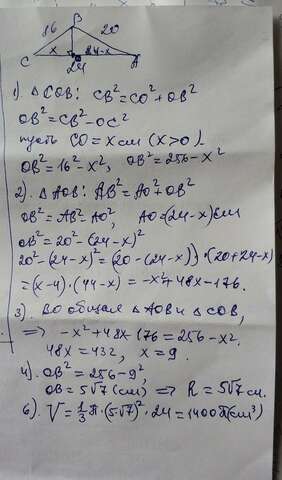 B
16 20
C x 24-x A
24
1) ΔCOB: CB²=CO²+OB²
OB²=CB²-OC²
пусть CO=x см (x>0).
OB²=16²-x², OB²=256-x²
2). ΔAOB: AB²=AO²+OB²
OB²=AB²-AO², AO=(24-x)см
OB²=20²-(24-x)²
20²-(24-x)²=(20-(24-x))·(20+24-x)
=(x-4)·(44-x)=-x²+48x-176.
3). OB общая ΔAOB и ΔCOB,
⇒ -x²+48x-176=256-x².
48x=432, x=9.
4). OB²=256-9²,
OB=5√7(см) ⇒ R=5√7см.
6). V=1/3π·(5√7)²·24=1400π(см³)